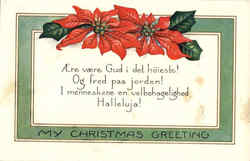 Ære være Gud i det høieste!
Og fred paa jorden!
I menneskene en velbehagelighed
Halleluja!
MY CHRISTMAS GREETING